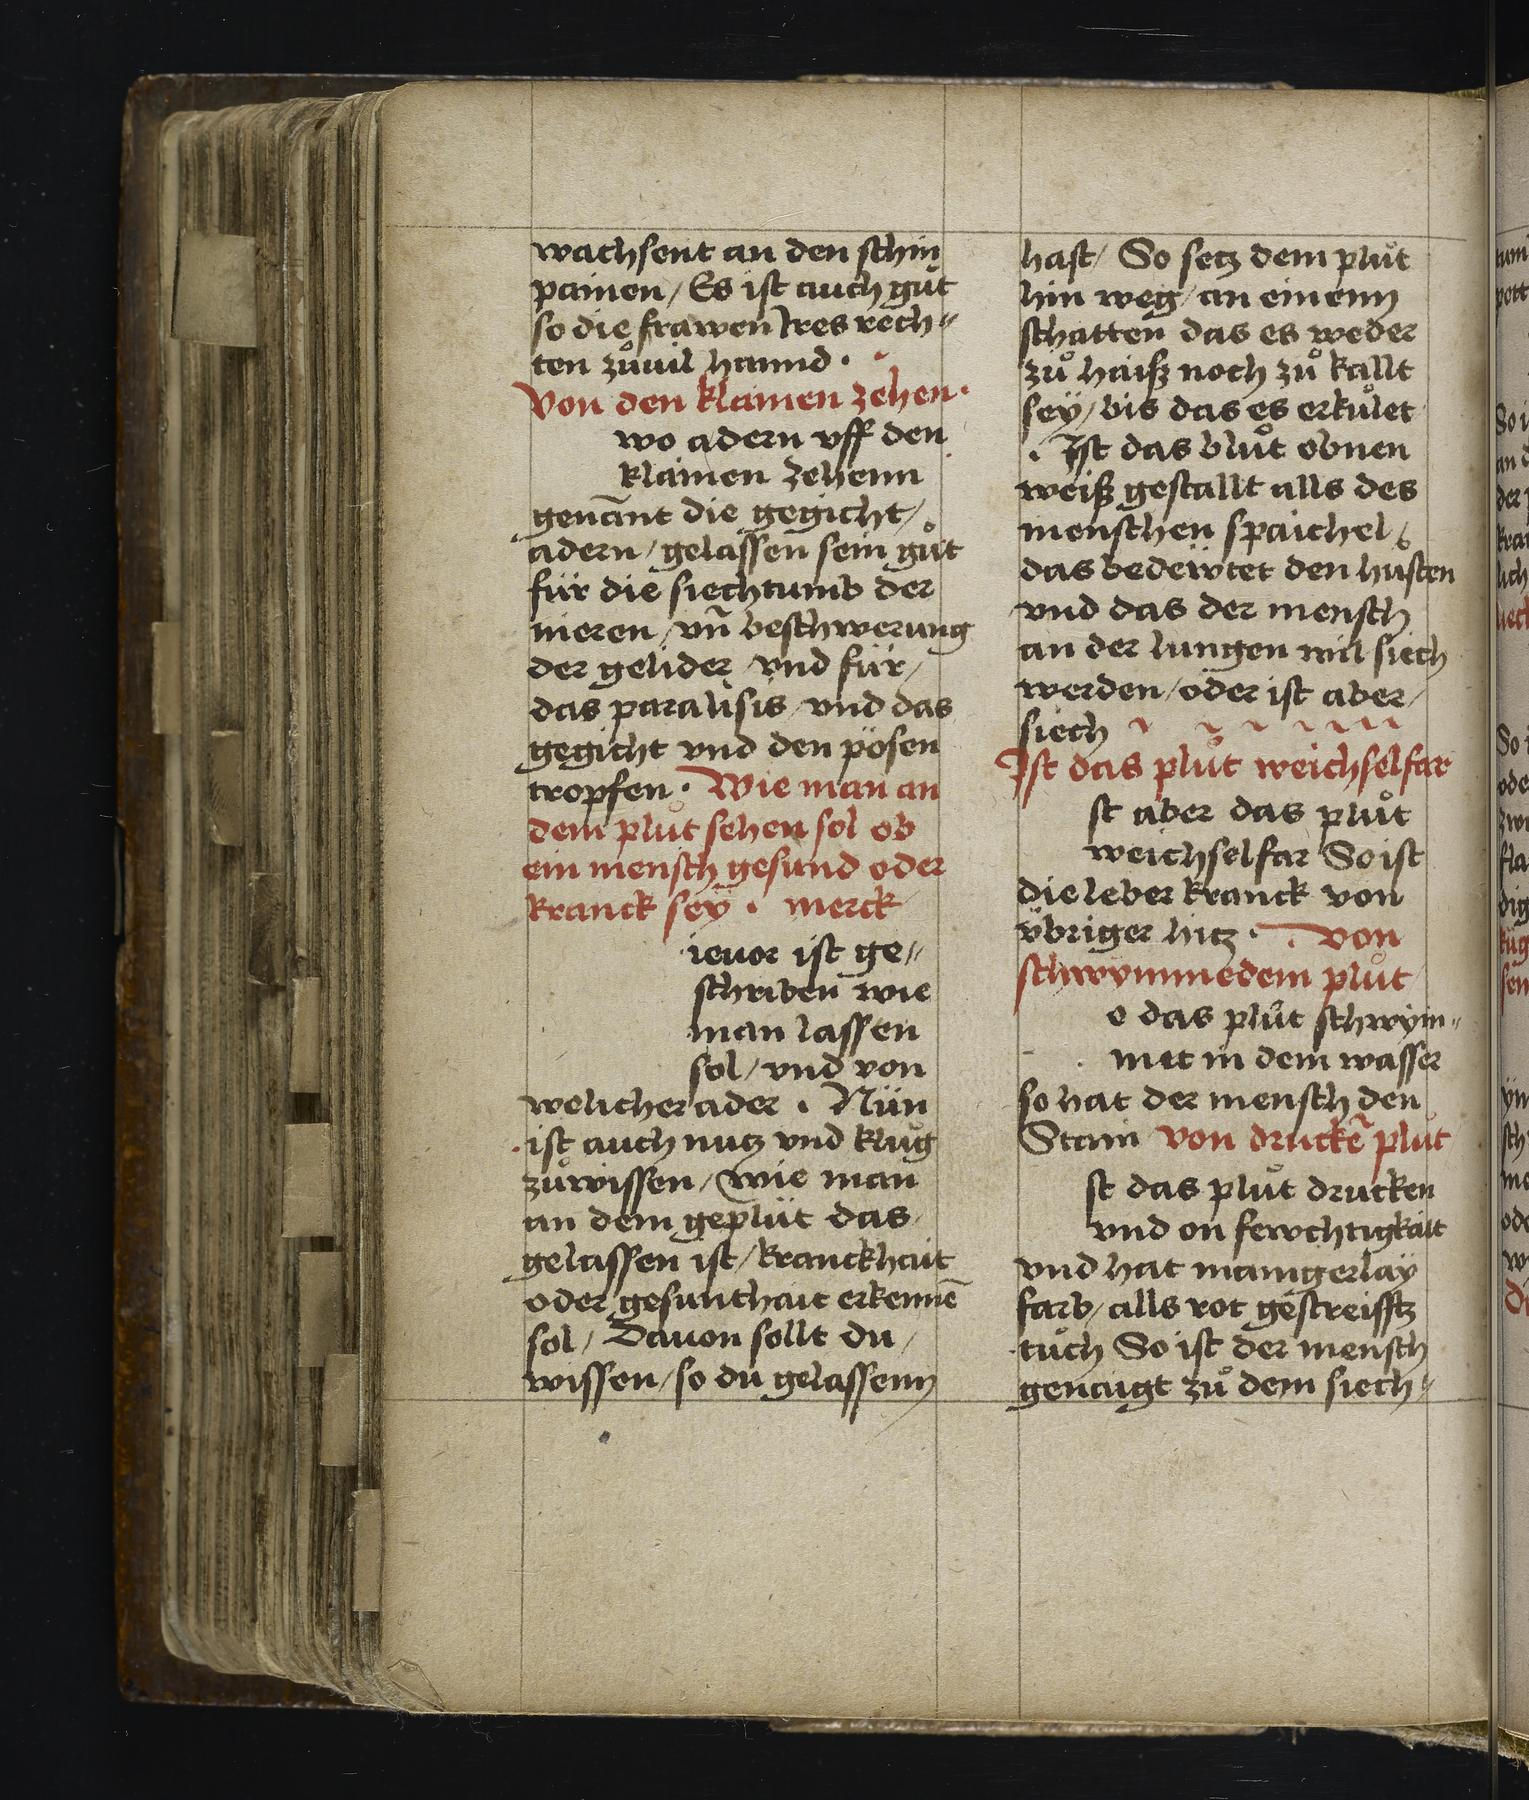 wachsent an den schin
painen / Es ist auch gůt
so die frawen Ires rech〃
ten zůuil hannd ·
Von den klainen zehen ·
wo adern vff den
klainen zehenn
genānt die gegicht /
adern / gelassen sein gůt
für die siechtumb der
nieren / vn̄ beschwerung
der gelider / vnd für /
das paralisis / vnd das
gegicht vnd den pösen
tropfen · Wie man an
dem plůt sehen sol ob
ein mensch gesund oder
kranck seÿ · merck
ieuor ist ge〃
schriben wie
man lassen
sol / vnd von
welicher ader · Nün
ist auch nutz vnd klůg
zůwissen / wie man
an dem geplüt das
gelassen ist / kranckhait
oder gesunthait erkennē
sol / Dauon sollt du /
wissen / so du gelassenn
hast / So setz dem plůt
hin weg / an einenn
schatten das es weder
zů haiß noch zů kallt
seÿ / bis das es erkůlet
· Ist das blůt obnen
weiß gestallt alls des
menschen spaichel
das bedeẅtet den husten
vnd das der mensch
an der lungen will siech
werden / oder ist aber /
siech
Ist das plůt weichselfar
st aber das plůt
weichselfar So ist
die leber kranck von
übriger hitz · von
schwymmedem plůt
o das plůt schwym〃
met in dem wasser
so hat der mensch den
Stain von druckē plůt
st das plůt drucken
vnd on fewchtigkait
vnd hat maingerlaÿ
farb / alls rot gestreifftz
tůch So ist der mensch
genaigt zů dem siech〃